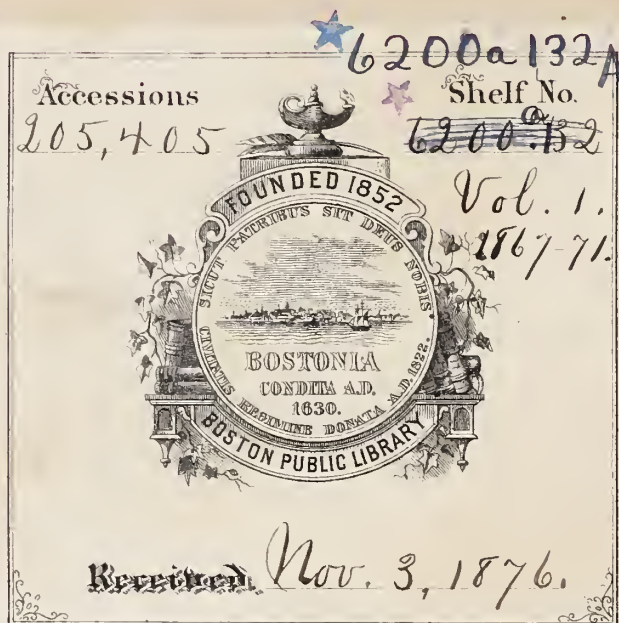 6200a 132A
Accessions
205,405
Shelf No.
6200.132
Vol. 1.
1867-71.
FOUNDED 1852
SICUT PATRIBUS SIT DEUS NOBIS
BOSTONIA
CONDITA A.D.
1630.
CIVITATIS REGIMINE DONATA A.D. 1822.
BOSTON PUBLIC LIBRARY
Received Nov. 3, 1876.